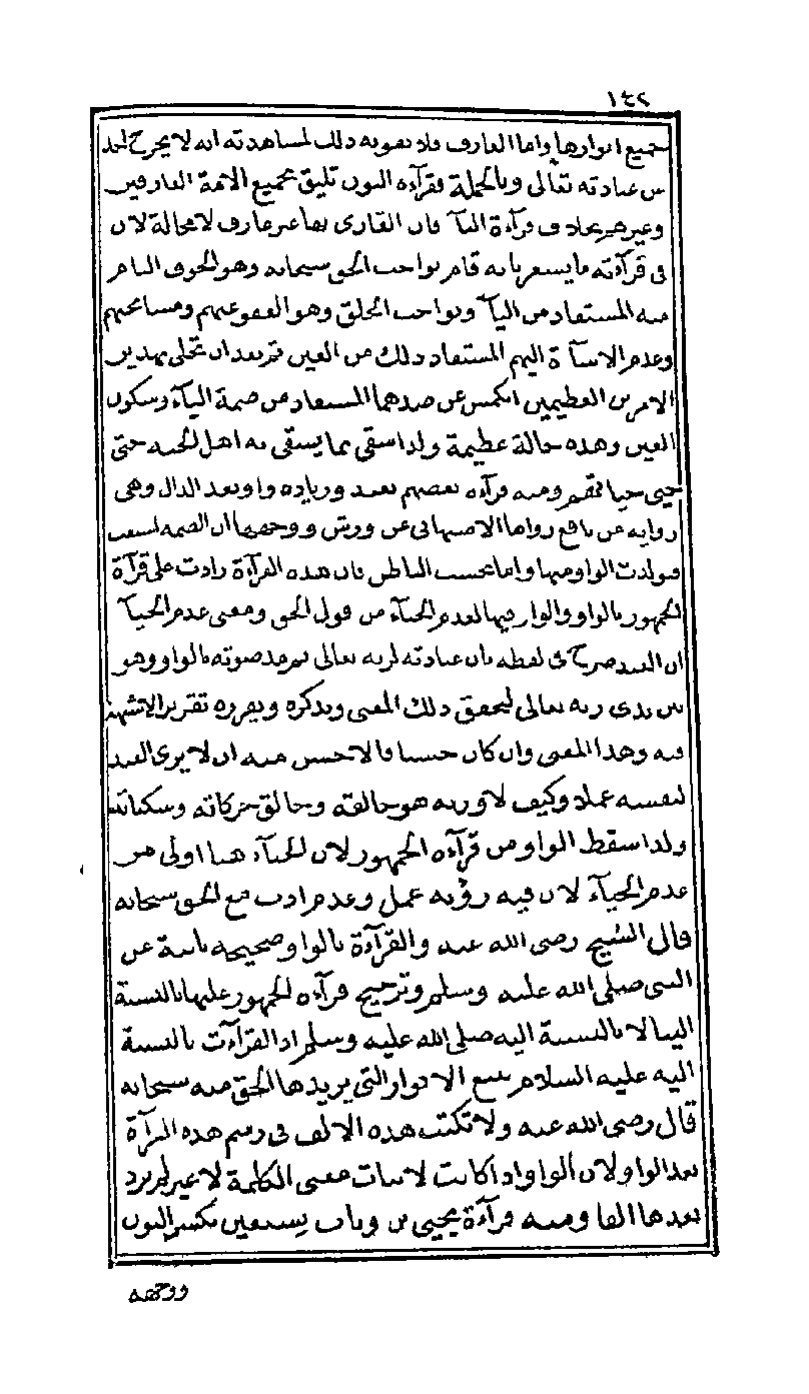 ١٤٢
بجميع انوارها واما العارف فلا يفوته ذلك لمشاهدته انه لا يخرج احد
عن عبادته تعالى وبالجملة فقرآءة النون تليق بجميع الائمة العارفين
وغيرهم بخلاف قرآءة اليآ فان القارى بها غير عارف لا محالة لان
فى قرآءته ما يشعر بانه قام بواجب الحق سبحانه وهو الخوف التام
منه المستفاد من اليآ وبواجب الخلق وهو العفو عنهم ومسامحتهم
وعدم الاسآءة اليهم المستفاد ذلك من العين ثم بعد ان تحلى بهذين
الامرين العظيمين انكمش عن ضدهما المستفاد من ضمة اليآء وسكون
العين وهذه حالة عظيمة ولذا سقى بما يسقى به اهل المحبة حتى
حيى ومنه قرآءه بعضهم نعبد وزياده واو بعد الدال وهى
روايه عن نافع رواها الاصبهانى عن ورش ووجهها ان الضمه اشبعت
فتولدت الواو منها واما بحسب الباطن فان هذه القرآءة زادت على قرآءة
الجمهور بالواو والواو فيها لعدم الحيآء من قول الحق ومعنى عدم الحيآ
ان العبد صرح فى لفظه بان عبادته لربه تعالى ثم مد صوته بالواو وهو
بين يدى ربه تعالى ليحقق ذلك المعنى ويذكره ويقرره تقريرا لاشبهة
فيه وهذا المعنى وان كان حسنا فالاحسن منه ان لا يرى العبد
لنفسه عملا وكيف لا وربه هو خالقه وخالق حركاته وسكناته
ولذا سقط الواو من قرآءه الجمهور لان الحيآء هنا اولى من
عدم الحيآء لان فيه رؤيه عمل وعدم ادب مع الحق سبحانه
قال الشيخ رضى الله عنه والقرآءة بالواو صحيحه ثابتة عن
النبى صلى الله عليه وسلم وترجيح قرآءه الجمهور عليها بالنسبة
الينا لا بالنسبة اليه صلى الله عليه وسلم اذ القرآءت بالنسبة
اليه عليه السلام تتبع الانوار التى يريدها الحق منه سبحانه
قال رضى الله عنه ولا تكتب هذه الالف فى رسم هذه القرآءة
بعد الواو لان الواو اذا كانت لاثبات معنى الكلمة لا غير لم يزد
بعدها الفا ومنه قرآءة يحيى بن وثاب نستعين بكسر النون
ووجهه